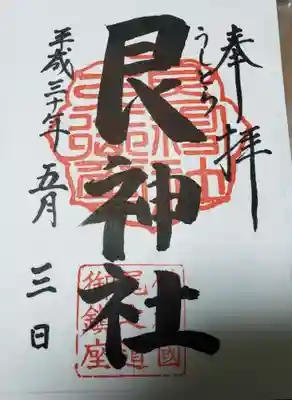 奉拝
うしとら
艮神社
平成三十年
五月
三日
御鎮座